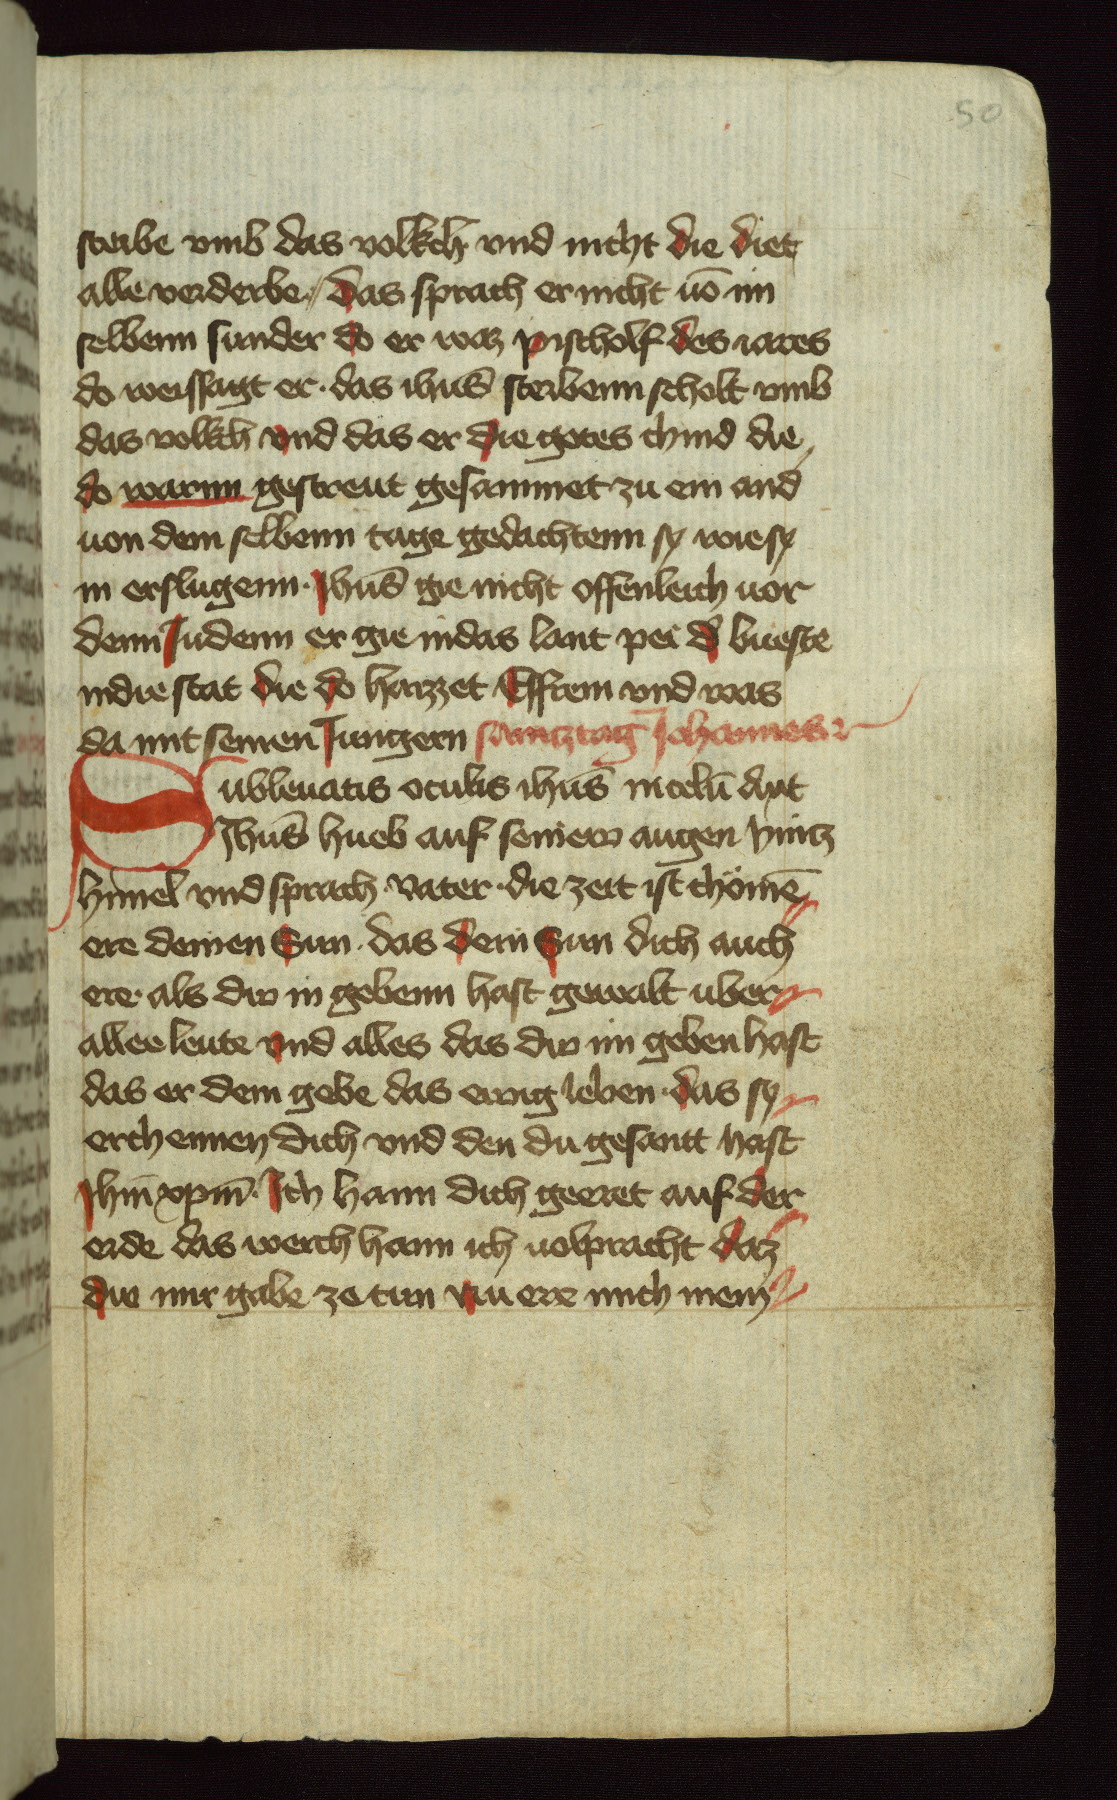 50
sterbe vmb das volkch vnd nicht die diet
alle verderbe // Das sprach er nicht uō im
selbenn sunder do er waz pischolf des iares
do weissagt er · das ihūs sterbenn scholt vmb
das volkch vnd das er die gotes chind die
do warnn gestreut gesammet zu ein and
uon dem selbenn tage gedachtenn sy wie sy
in erslugenn · Jhūs gie nicht offenleich uor
denn Judenn er gie in das lant pei d' bueste
in die stat die do haizzet Effrem vnd was
da mit seinen Jungern samztag Johannes
Subleuatis oculis ihūs in celū dixt
Jhūs hueb auf seinew augen hintz
himel vnd sprach Vater · die zeit ist chömē
ere deinen Sun · das dein Sun dich auch
ere · als dw in gebenn hast gewalt uber
allee leute vnd alles das dw im geben hast
das er dem gebe das ewig leben · das sy
erchennen dich vnd den du gesantt hast
Jhm̄ xpm̄ · Ich hann dich geeret auf der
erde das werch hann ich uolpracht daz
dw mir gabe ze tun Nu ere mich mein